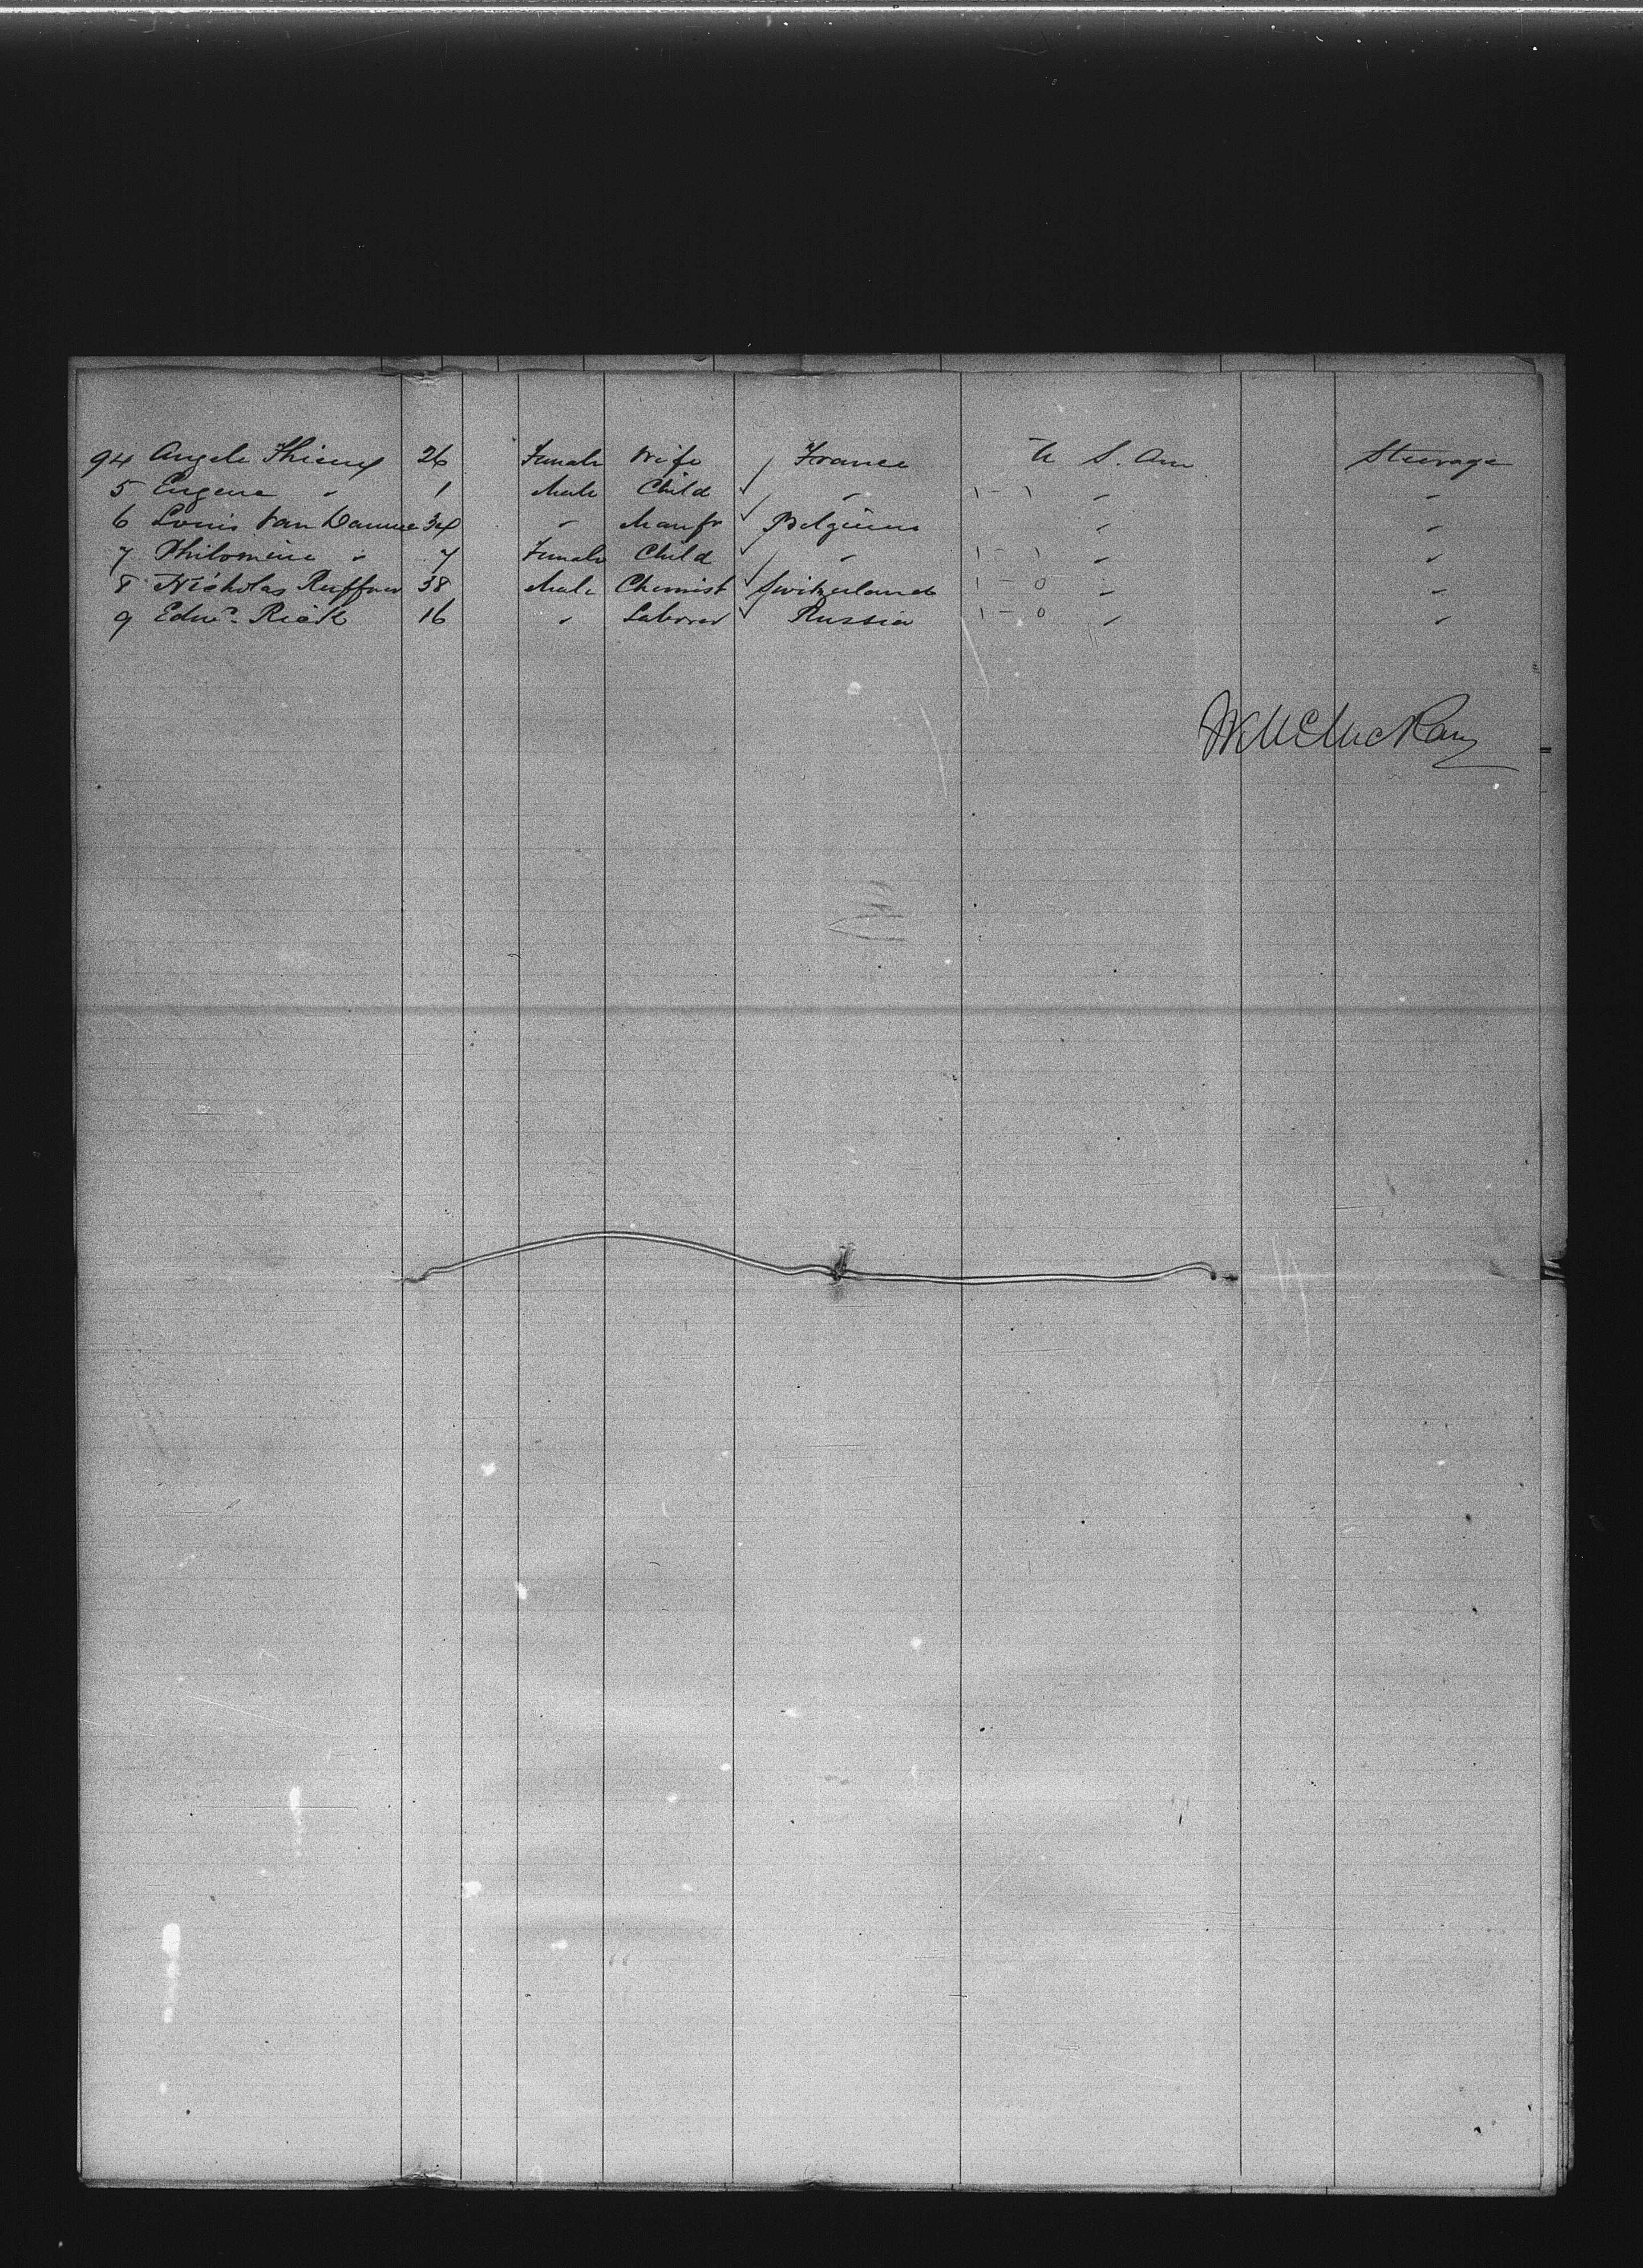 94 Angele 26 Female Wife ✓ France U S. Am Steerage
5 Eugene " 1 Male Child ✓ " 1 - 1 " "
6 Louis Van Damme 34 " Manfr ✓ Belgium " "
7 Philomene " 7 Female Child ✓ " 1 - 1 " "
8 Nicholas Ruffner 38 Male Chemist ✓ Switzerland 1 - 0 " "
9 Edwd. 16 " Laborer ✓ Russia 1 - 0 " "